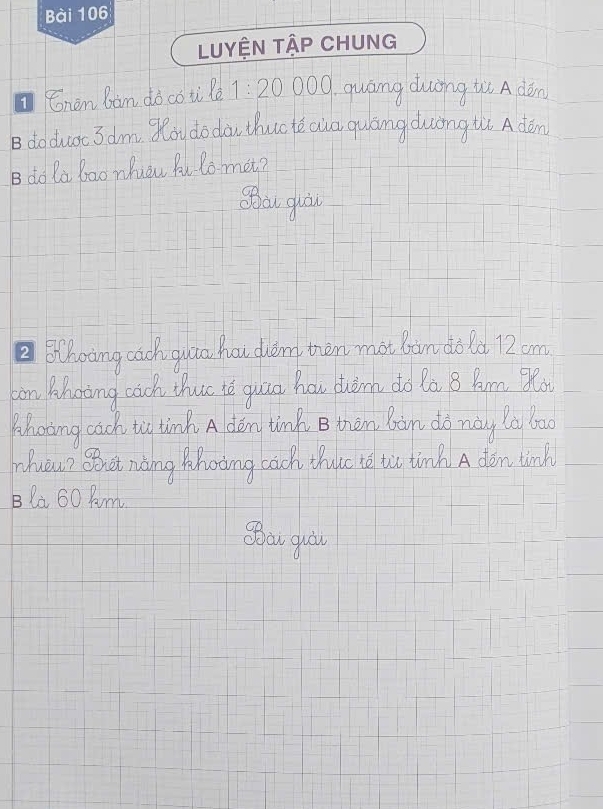 Bài 106
LUYỆN TẬP CHUNG
1 Trên bản đồ có tỉ lệ 1 : 20 000, quãng đường từ A đến
B đo được 3 dm. Hỏi độ dài thực tế của quãng đường từ A đến
B đó là bao nhiêu ki-lô-mét?
Bài giải
2 Khoảng cách giữa hai điểm trên một bản đồ là 12 cm,
còn khoảng cách thực tế giữa hai điểm đó là 8 km. Hỏi
khoảng cách từ tỉnh A đến tỉnh B trên bản đồ này là bao
nhiêu? Biết rằng khoảng cách thực tế từ tỉnh A đến tỉnh
B là 60 km.
Bài giải